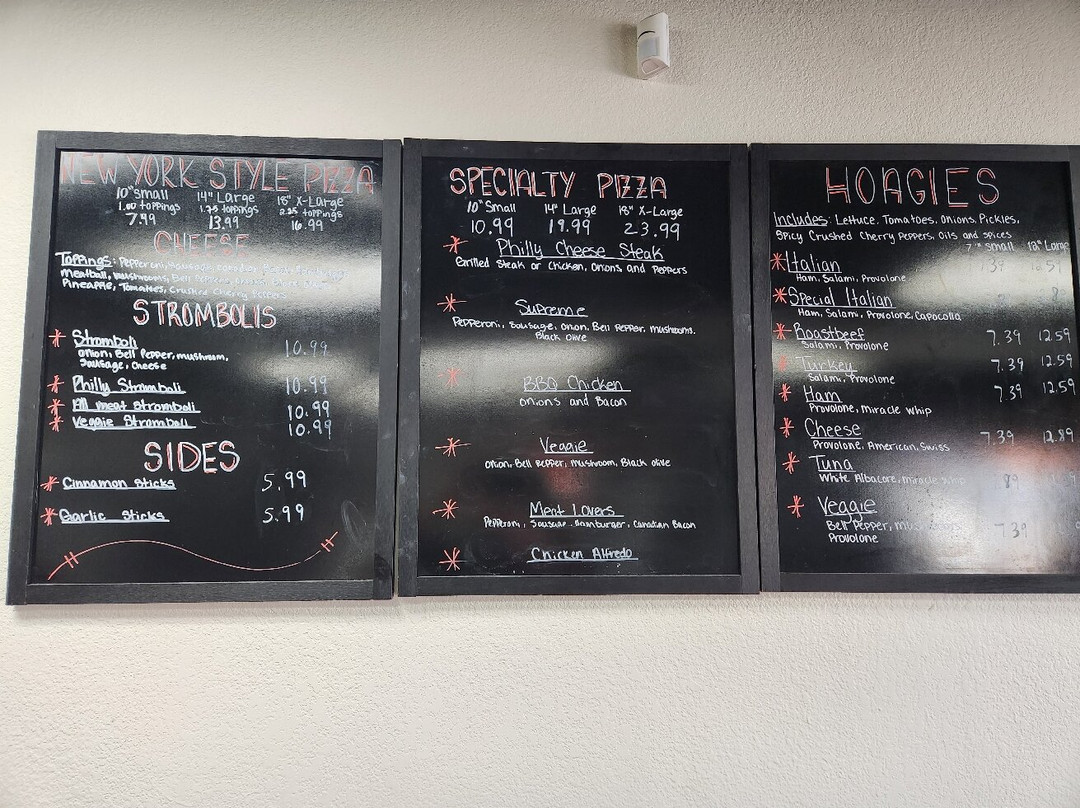 NEW YORK STYLE PIZZA
10" small 14" Large 18" X-Large
1.00 toppings 1.75 toppings 2.25 toppings
7.99 13.99 16.99
CHEESE
Toppings: Pepperoni, Sausage,
Meatball, mushrooms, Bell Peppers,
Pineapple, Tomatoes, Crushed Cherry Peppers
STROMBOLIS
* Stromboli 10.99
Onion, Bell Pepper, mushroom,
Sausage, Cheese
* Philly Stromboli 10.99
* All meat Stromboli 10.99
* Veggie Stromboli 10.99
SIDES
* Cinnamon Sticks 5.99
* Garlic Sticks 5.99
SPECIALTY PIZZA
10" Small 14" Large 18" X-Large
10.99 19.99 23.99
* Philly Cheese Steak
Grilled Steak or Chicken, Onions and Peppers
* Supreme
Pepperoni, Sausage, Onion, Bell Pepper, mushrooms,
Black Olive
* BBQ Chicken
Onions and Bacon
* Veggie
Onion, Bell Pepper, Mushroom, Black Olive
* Meat Lovers
Pepperoni, Sausage, Hamburger, Canadian Bacon
* Chicken Alfredo
HOAGIES
Includes: Lettuce, Tomatoes, Onions, Pickles,
Spicy Crushed Cherry Peppers, Oils and Spices
7" Small 12" Large
* Italian
Ham, Salami, Provolone
* Special Italian
Ham, Salami, Provolone, Capocolla
* Roastbeef 7.39 12.59
Salami, Provolone
* Turkey 7.39 12.59
Salami, Provolone
* Ham 7.39 12.59
Provolone, miracle whip
* Cheese 7.39 12.89
Provolone, American, Swiss
* Tuna
White Albacore, miracle whip
* Veggie 7.39
Bell Pepper,
Provolone